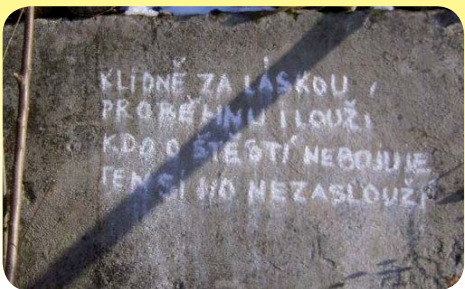 KLIDNĚ ZA LÁSKOU,
PROBĚHNU I LOUŽI
KDO O ŠTĚSTÍ NEBOJUJE
TEN SI HO NEZASLOUŽÍ